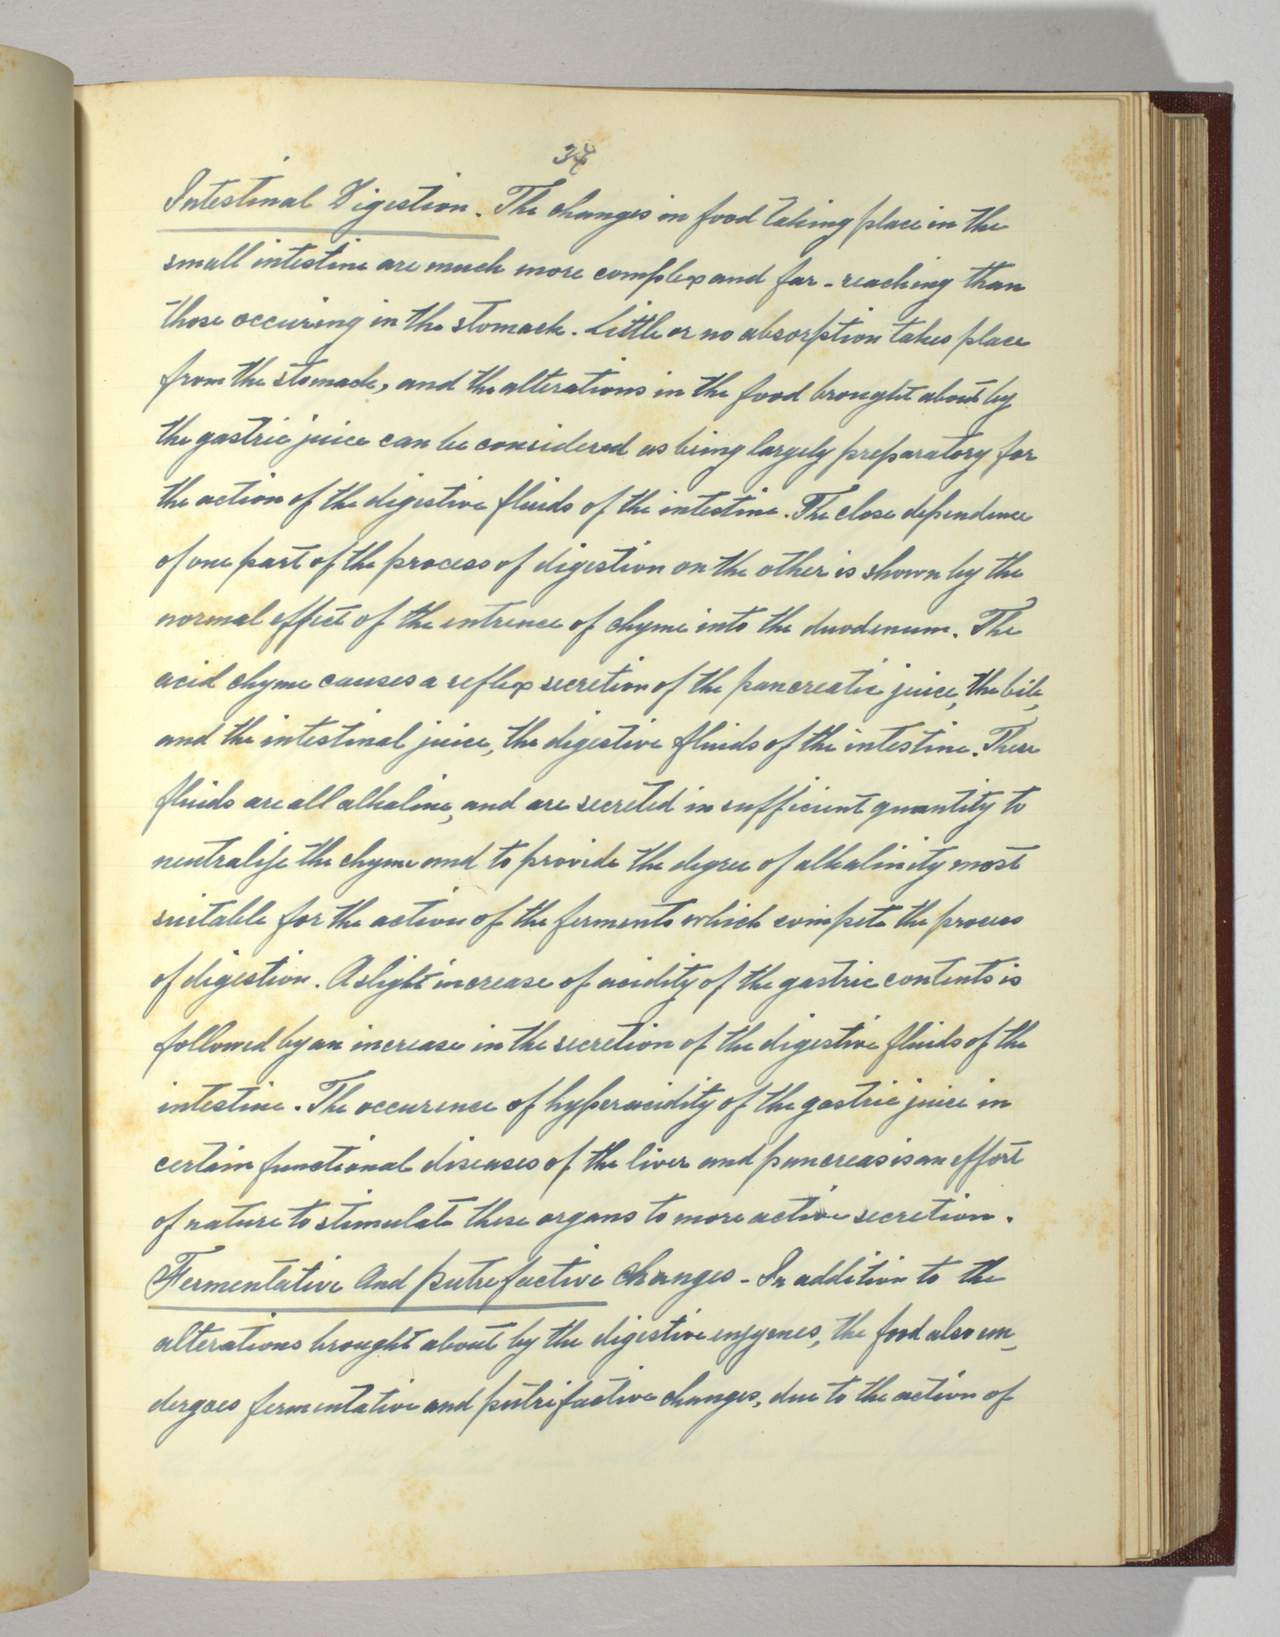 34
Intestinal Digestion. The changes in food taking place in the
small intestine are much more complex and far-reaching than
those occuring in the stomach. Little or no absorption takes place
from the stomach, and the alterations in the food brought about by
the gastric juice can be considered as being largely preparatory for
the action of the digestive fluids of the intestine. The close dependence
of one part of the process of digestion on the other is shown by the
normal effect of the entrence of chyme into the duodenum. The
acid chyme causes a reflex secretion of the pancreatic juice, the bile,
and the intestinal juice, the digestive fluids of the intestine. These
fluids are all alkaline, and are secreted in sufficient quantity to
neutralize the chyme and to provide the degree of alkalinity most
suitable for the action of the ferments which compete the process
of digestion. A slight increase of acidity of the gastric contents is
followed by an increase in the secretion of the digestive fluids of the
intestine. The occurence of hyperacidity of the gastric juice in
certain functional diseases of the liver and pancreas is an effort
of nature to stimulate these organs to more active secretion.
Fermentative And putrefactive Changes - In addition to the
alterations brought about by the digestive enzymes, the food also un-
dergoes fermentative and putrifactive changes, due to the action of